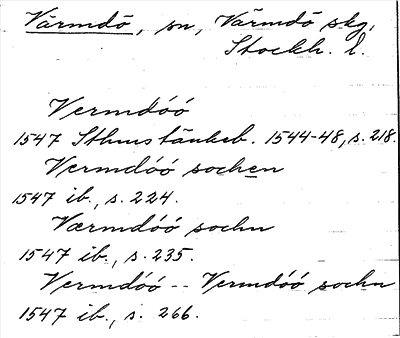 Värmdö, sn, Värmdö skg,
Stockh. l.
Vermdóó
1547 Sthmstänkeb. 1544-48, s. 218.
Vermdóó sochen
1547 ib., s. 224.
Værmdóó sochn
1547 ib., s. 235.
Vermdóó -- Vermdóó sochn
1547 ib., s. 266.